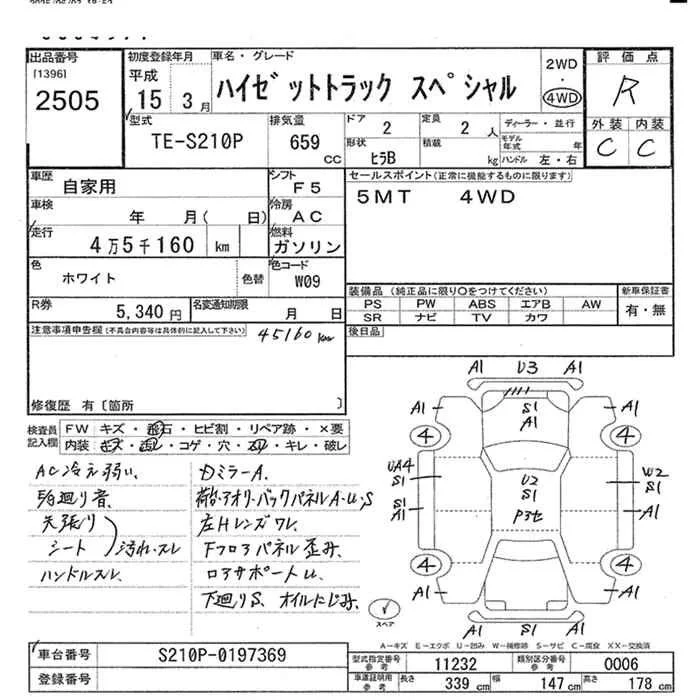 出品番号
[1396]
2505
初度登録年月
平成
15 3月
車名・グレード
ハイゼットトラック スペシャル
2WD
・
4WD
評価点
R
外装 内装
C C
型式
TE-S210P
排気量
659
CC
ドア 2
定員 2 人
形状 ヒラB
積載 kg
ディーラー・並行
モデル年式 年
ハンドル 左・右
車歴 自家用
シフト F5
セールスポイント(正常に機能するものに限ります)
5MT 4WD
車検 年 月( 日)
冷房 AC
走行 4万5千160 km
燃料 ガソリン
色 ホワイト 色替
色コード W09
装備品 (純正品に限り○をつけてください)
PS PW ABS エアB AW
SR ナビ TV カワ
新車保証書
有・無
R券 5,340円
名変通知期限 月 日
後日品
注意事項申告欄(不具合内容等は具体的に記入して下さい)
45160 km
修復歴 有〔箇所 〕
検査員記入欄
FW キズ・飛石・ヒビ割・リペア跡・×要
内装:キズ・汚レ・コゲ・穴・スレ・キレ・破レ
AC冷え弱い、
足廻り音、
天張り
シート 汚れ・スレ
ハンドルスレ、
DミラーA、
荷台・アオリ・バックパネルA・U・S
左Hレンズワレ、
Fフロアパネル歪み、
ロアサポートU、
下廻りS、オイルにじみ、
A1 U3 A1
A1 S1 A1
A1
4 4
UA4 S1
U2 S1
W2 S1
S1 A1
P3セ
A1
4 4
A1 A1
A1 A1
スペア
A-キズ E-エクボ U-凹み W-補修跡 S-サビ C-腐食 XX-交換済
車台番号 S210P-0197369
登録番号
型式指定番号 参考 11232
類別区分番号 参考 0006
車庫証明記入欄 参考 長さ 339 cm 幅 147 cm 高さ 178 cm